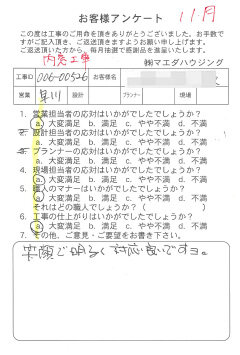 お客様アンケート 11月
この度は工事のご用命を頂きありがとうございました。お手数で
すがご記入頂き、ご返送頂きますようお願い申し上げます。
ご返送頂いた方から、毎月抽選で感謝品を進呈いたします。
内窓工事
㈱マエダハウジング
工事ID 006-00526 お客様名
営業 設計 プランナー 現場
1. 営業担当者の応対はいかがでしたでしょうか?
a. 大変満足 b. 満足 c. やや不満 d. 不満
2. 設計担当者の応対はいかがでしたでしょうか?
a. 大変満足 b. 満足 c. やや不満 d. 不満
3. プランナーの応対はいかがでしたでしょうか?
a. 大変満足 b. 満足 c. やや不満 d. 不満
4. 現場担当者の応対はいかがでしたでしょうか?
a. 大変満足 b. 満足 c. やや不満 d. 不満
5. 職人のマナーはいかがでしたでしょうか?
a. 大変満足 b. 満足 c. やや不満 d. 不満
それはどの職人でしょうか?( )
6. 工事の仕上がりはいかがでしたでしょうか?
a. 大変満足 b. 満足 c. やや不満 d. 不満
7. その他、ご意見・ご要望をお書き下さい。
笑顔で明るく対応良いですヨ。